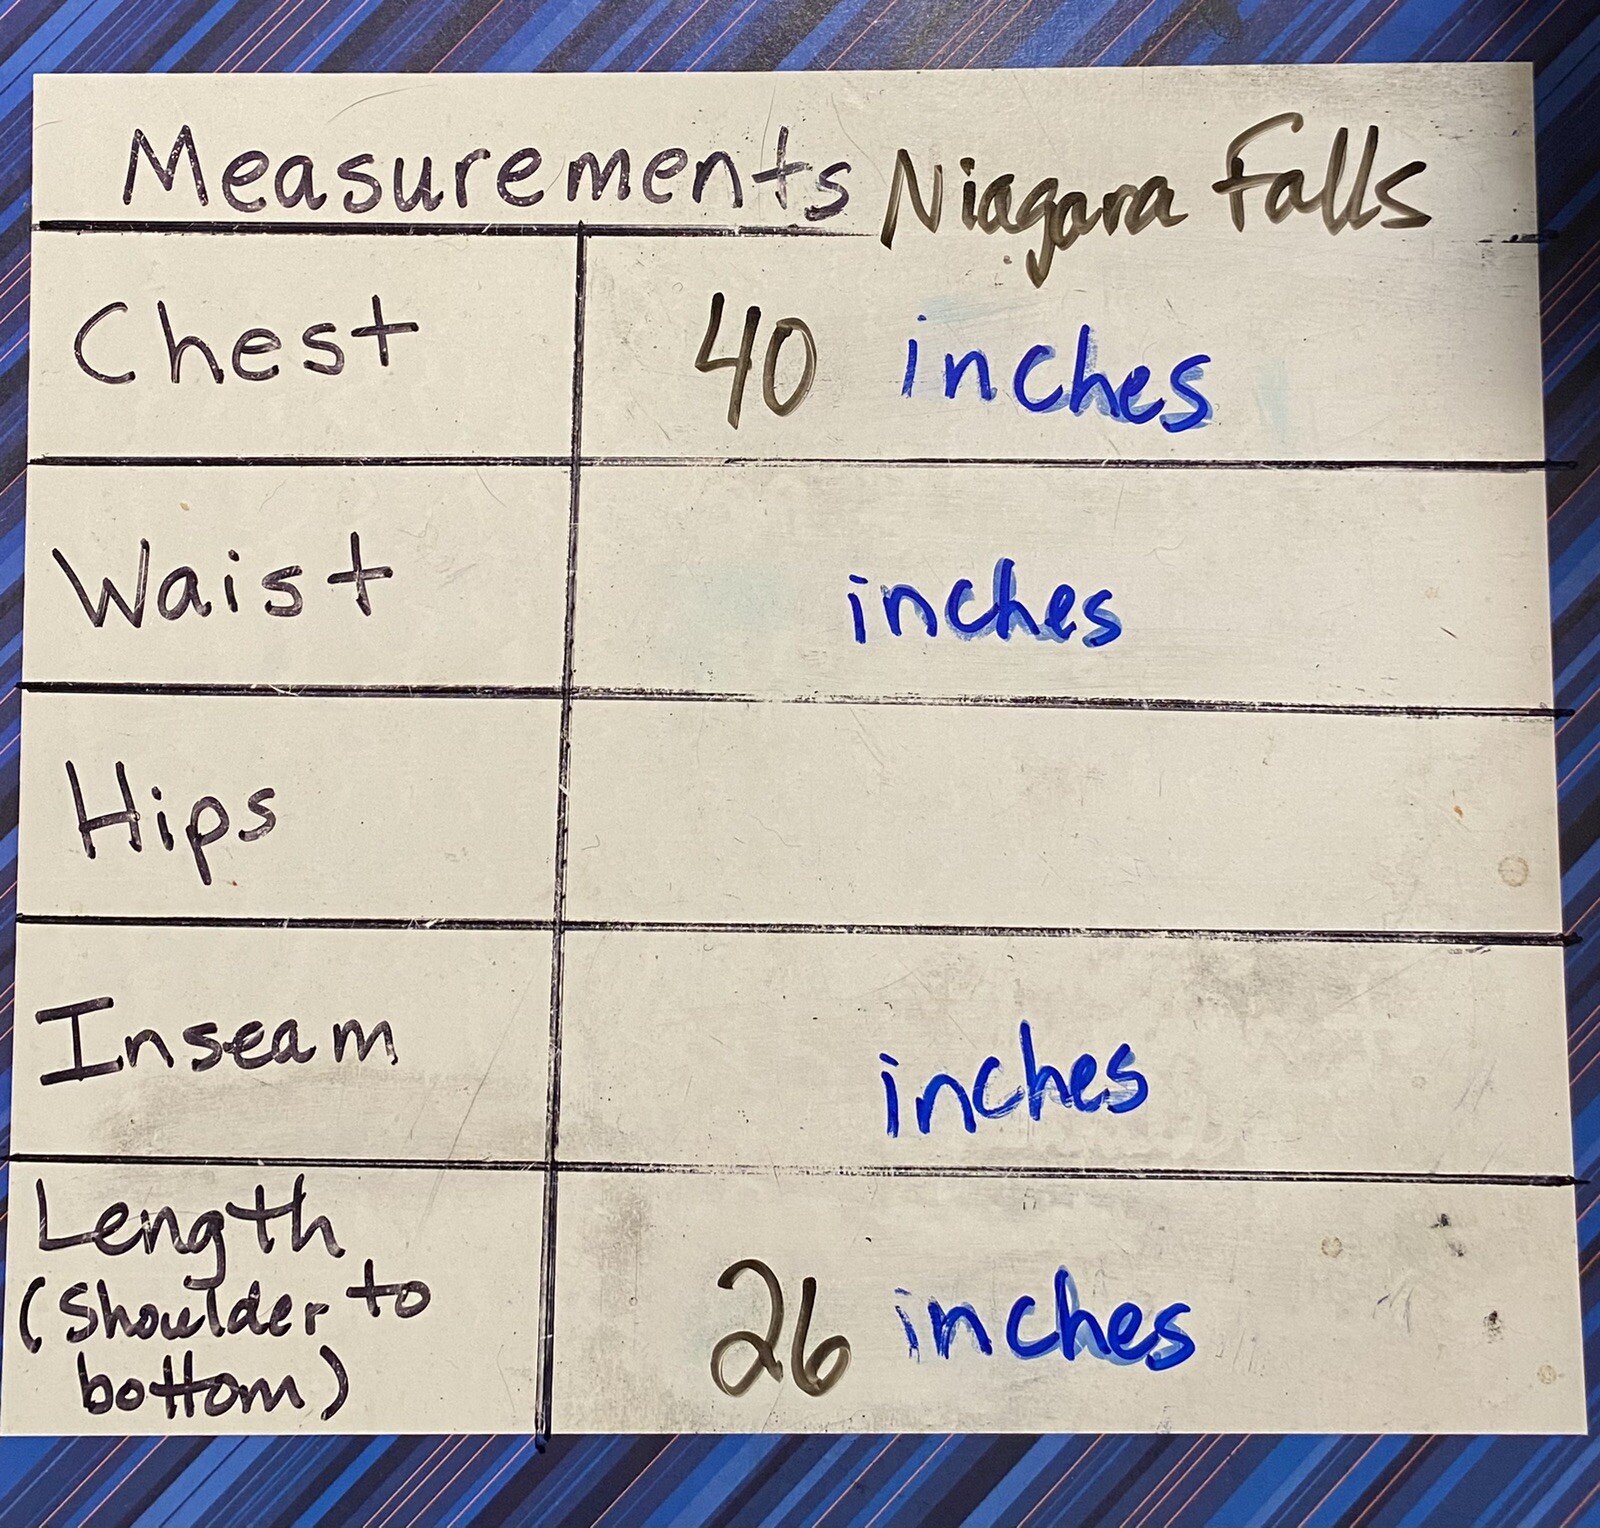 Measurements Niagara Falls
Chest 40 inches
Waist inches
Hips
Inseam inches
Length
(Shoulder to
bottom) 26 inches